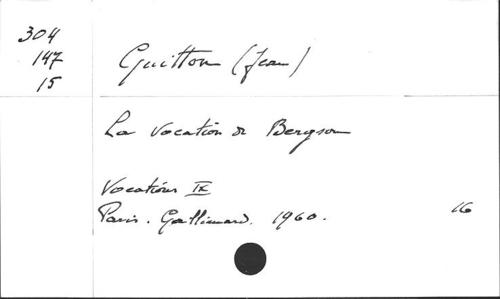 304
147
15
Guitton (Jean)
La Vocation de Bergson
Vocations IX
Paris. Gallimard. 1960.
16